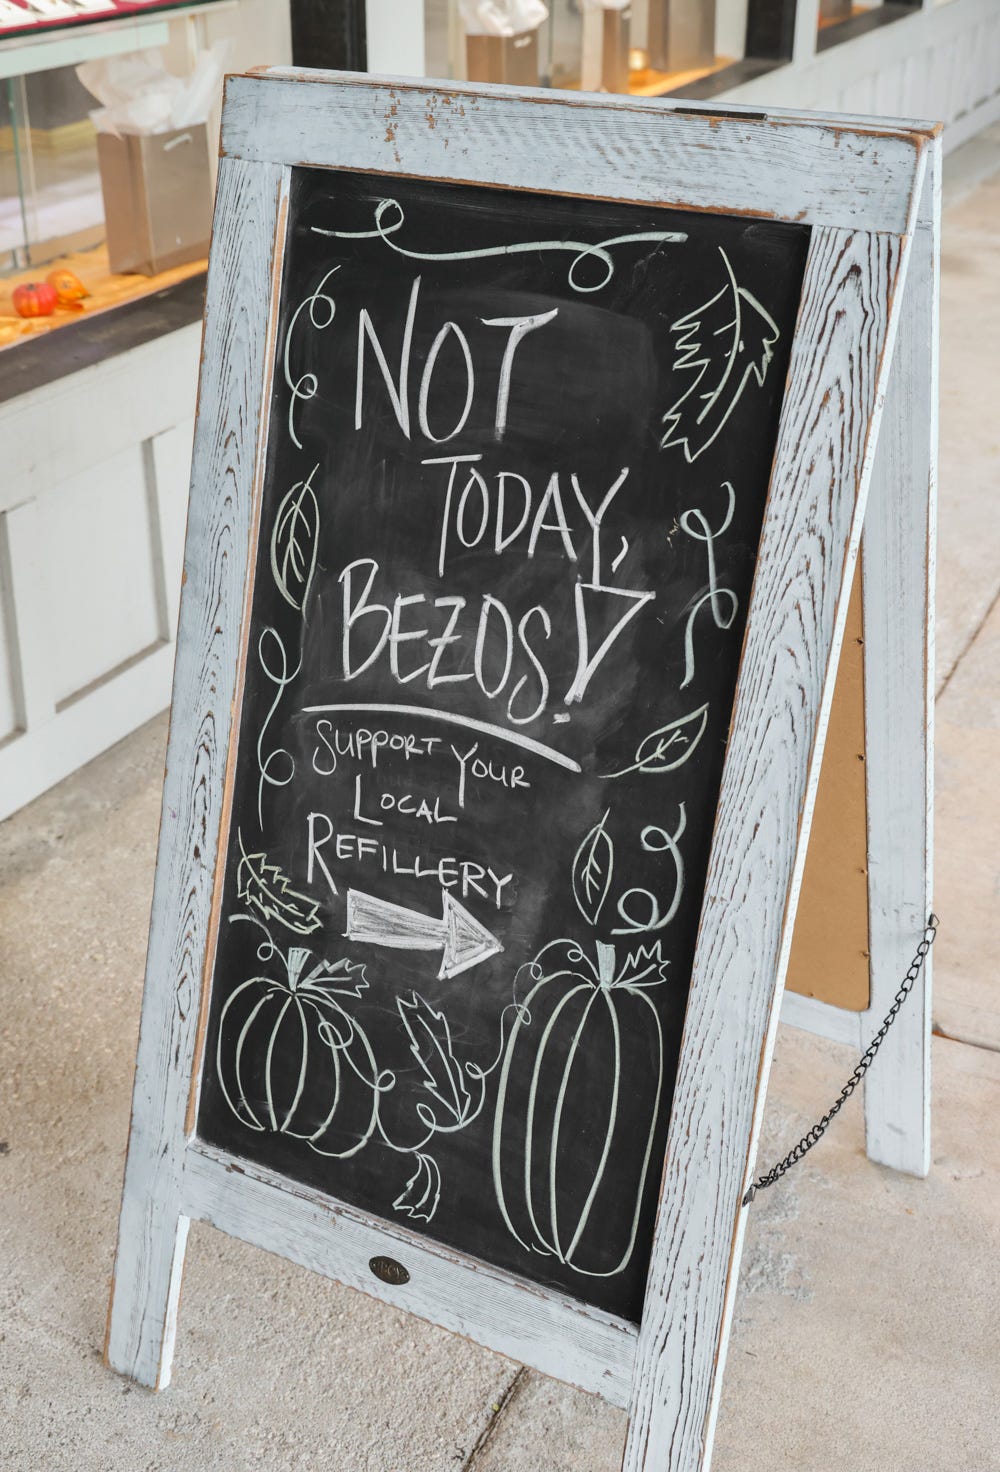 NOT
TODAY,
BEZOS!
SUPPORT YOUR
LOCAL
REFILLERY